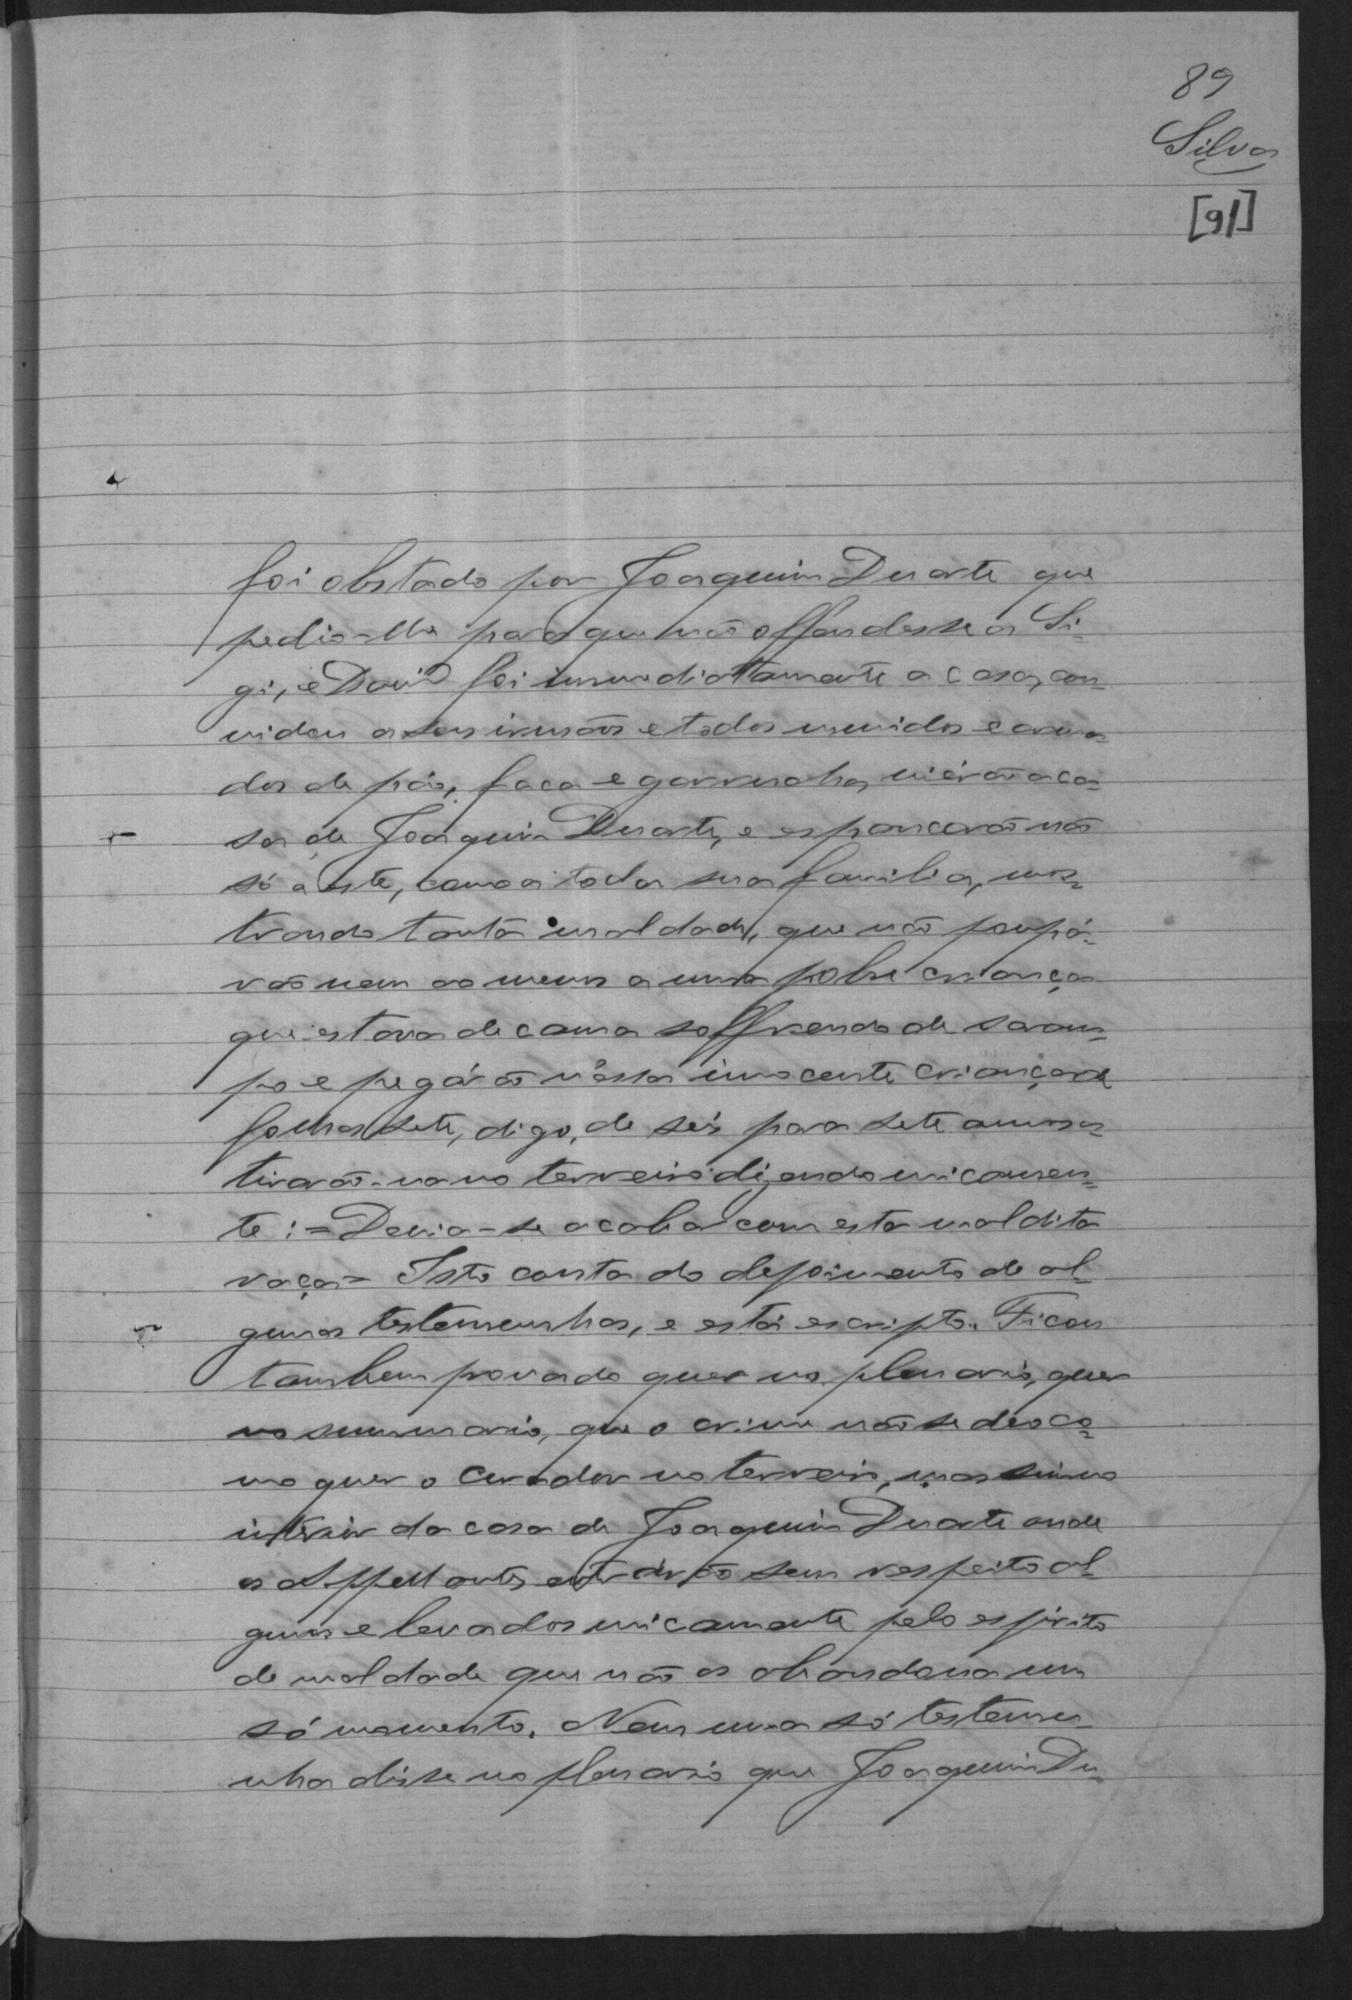 89
Silva
[91]
foi obstado por Joaquim Duarte que
pedio-lhe para que não offendesse a Si-
gi, e David foi immediattamente a casa, con-
vidou a seus irmãos e todos munidos e arma-
dos de páo, faca e garrucha, viérão a ca-
sa de Joaquim Duarte, e espancarão não
só a este, como a toda sua familia, mos-
trando tanta maldade, que não poupá-
vão nem ao menos a uma pobre criança
que estava de cama soffrendo de saram-
po e pegárão n'essa innocente criança de
folhas sete, digo, de seis para sete annos
tirarão-na no terreiro dizendo unicamen-
te: = Devia-se acabar com esta maldita
raça = Isto consta do depoimento de al-
gumas testemunhas, e está escripto. Ficou
tambem provado quer no plenario, quer
no summario, que o crime não se deo co-
mo quer o Curador no terreiro, mas sim no
interior da casa de Joaquim Duarte onde
os Appellantes entrárão sem respeito al-
gum e levados unicamente pelo espirito
de maldade que não os abandona um
só momento. Nem uma só testemu-
nha disse no plenario que Joaquim Du-